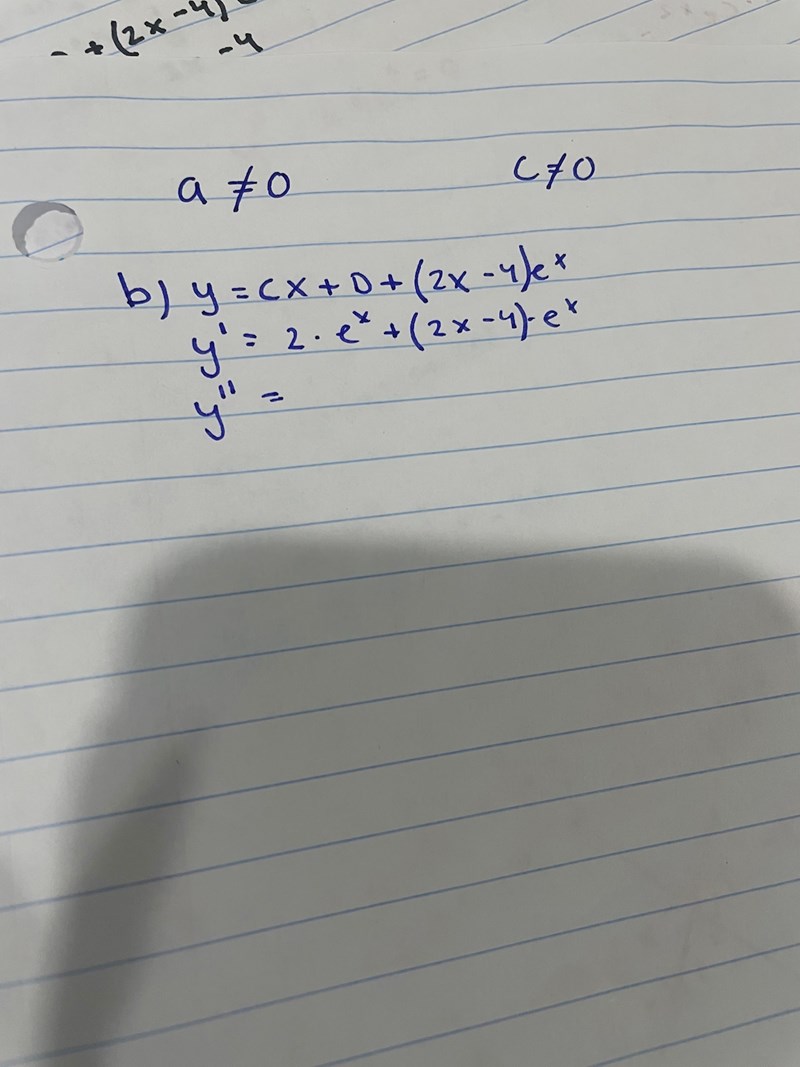 +(2x-4)
-4
a ≠ 0 c ≠ 0
b) y = cx + D + (2x - 4)eˣ
y' = 2 · eˣ + (2x - 4) · eˣ
y'' =